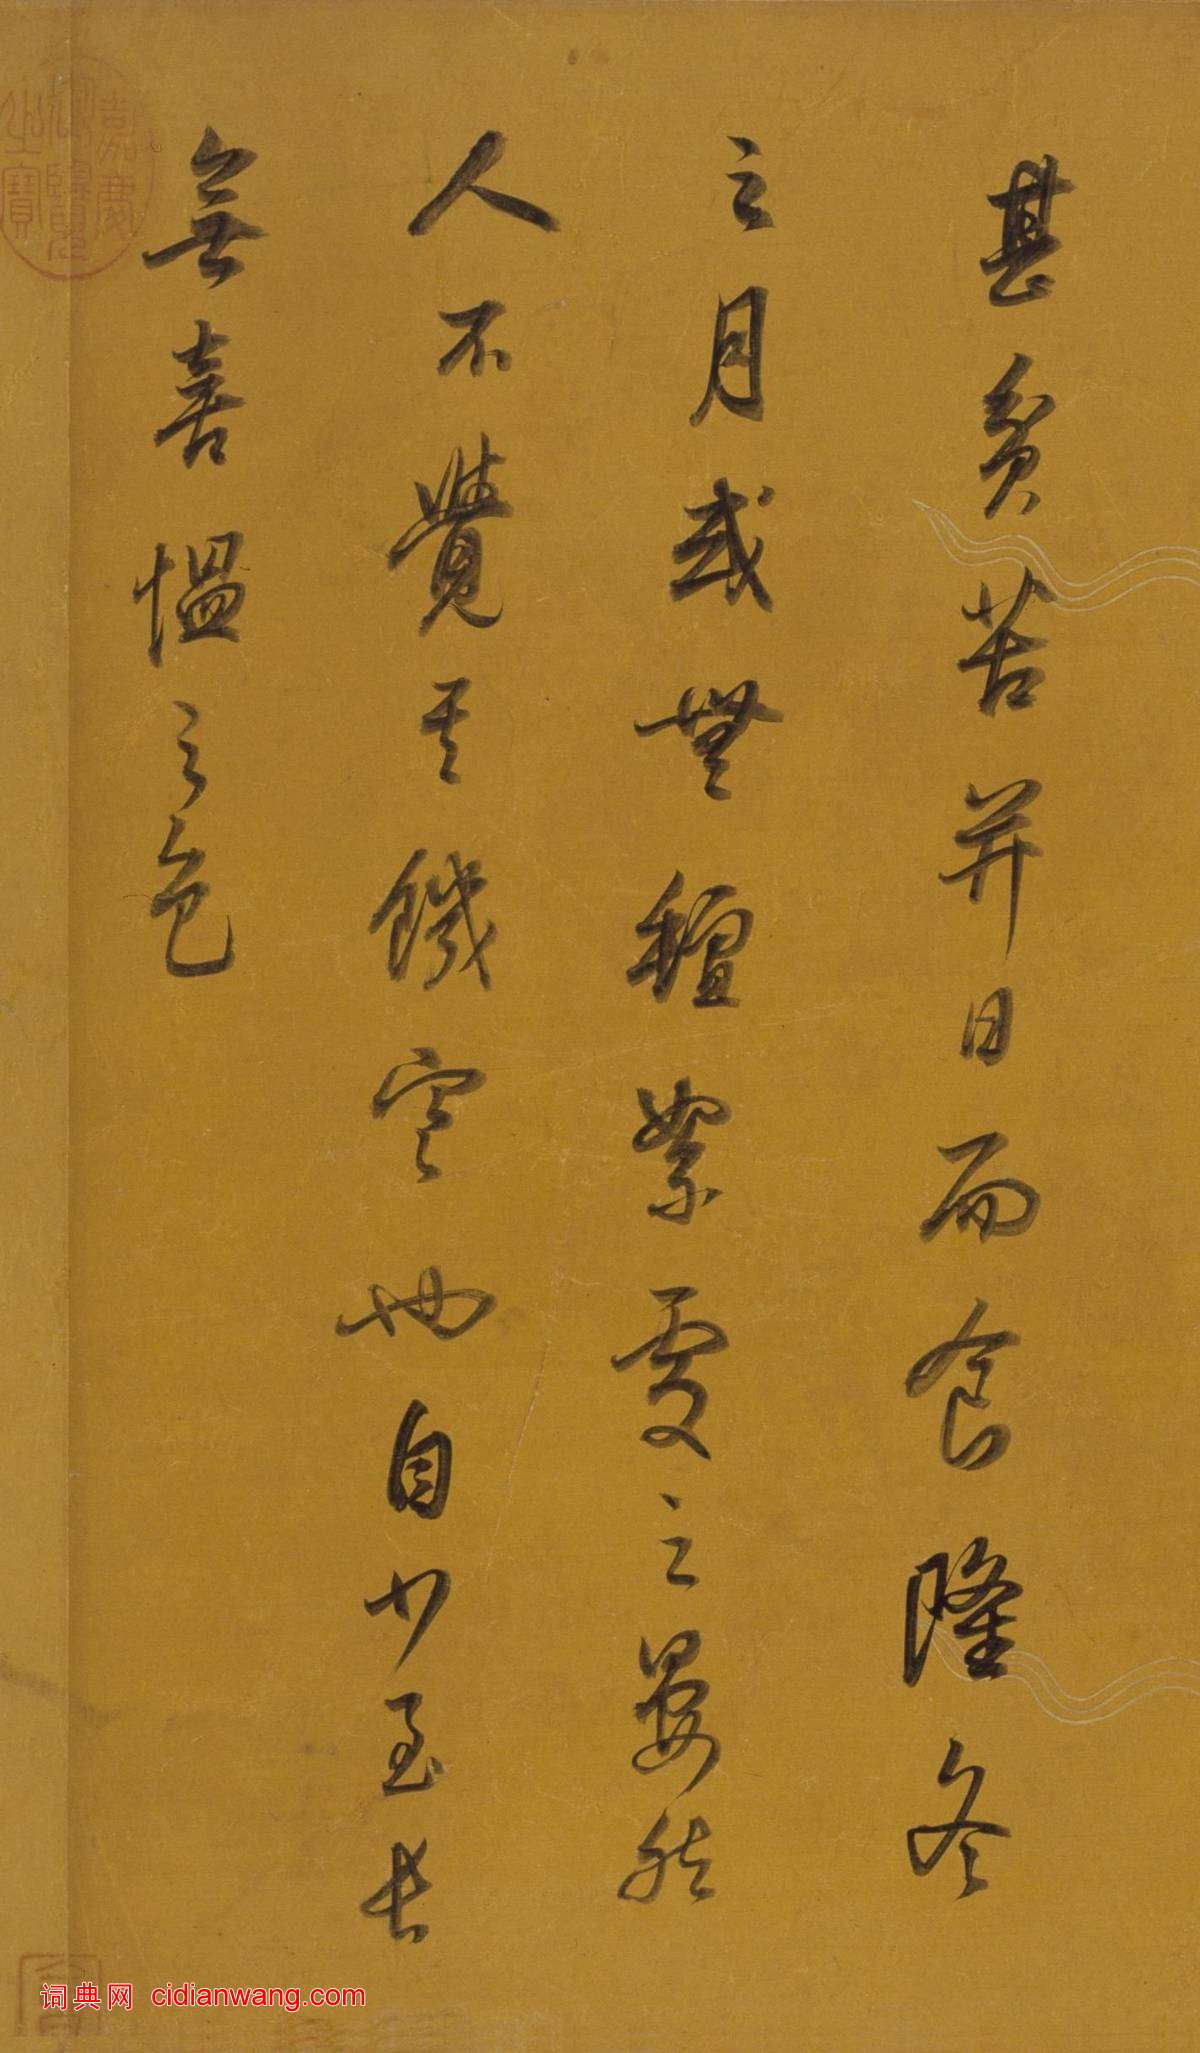 甚貧苦并日而食隆冬
之月或無氊絮處之晏然
人不覺其饑寒也自少至長
無喜愠之色
嘉慶
御覽
之寶
词典网 cidianwang.com